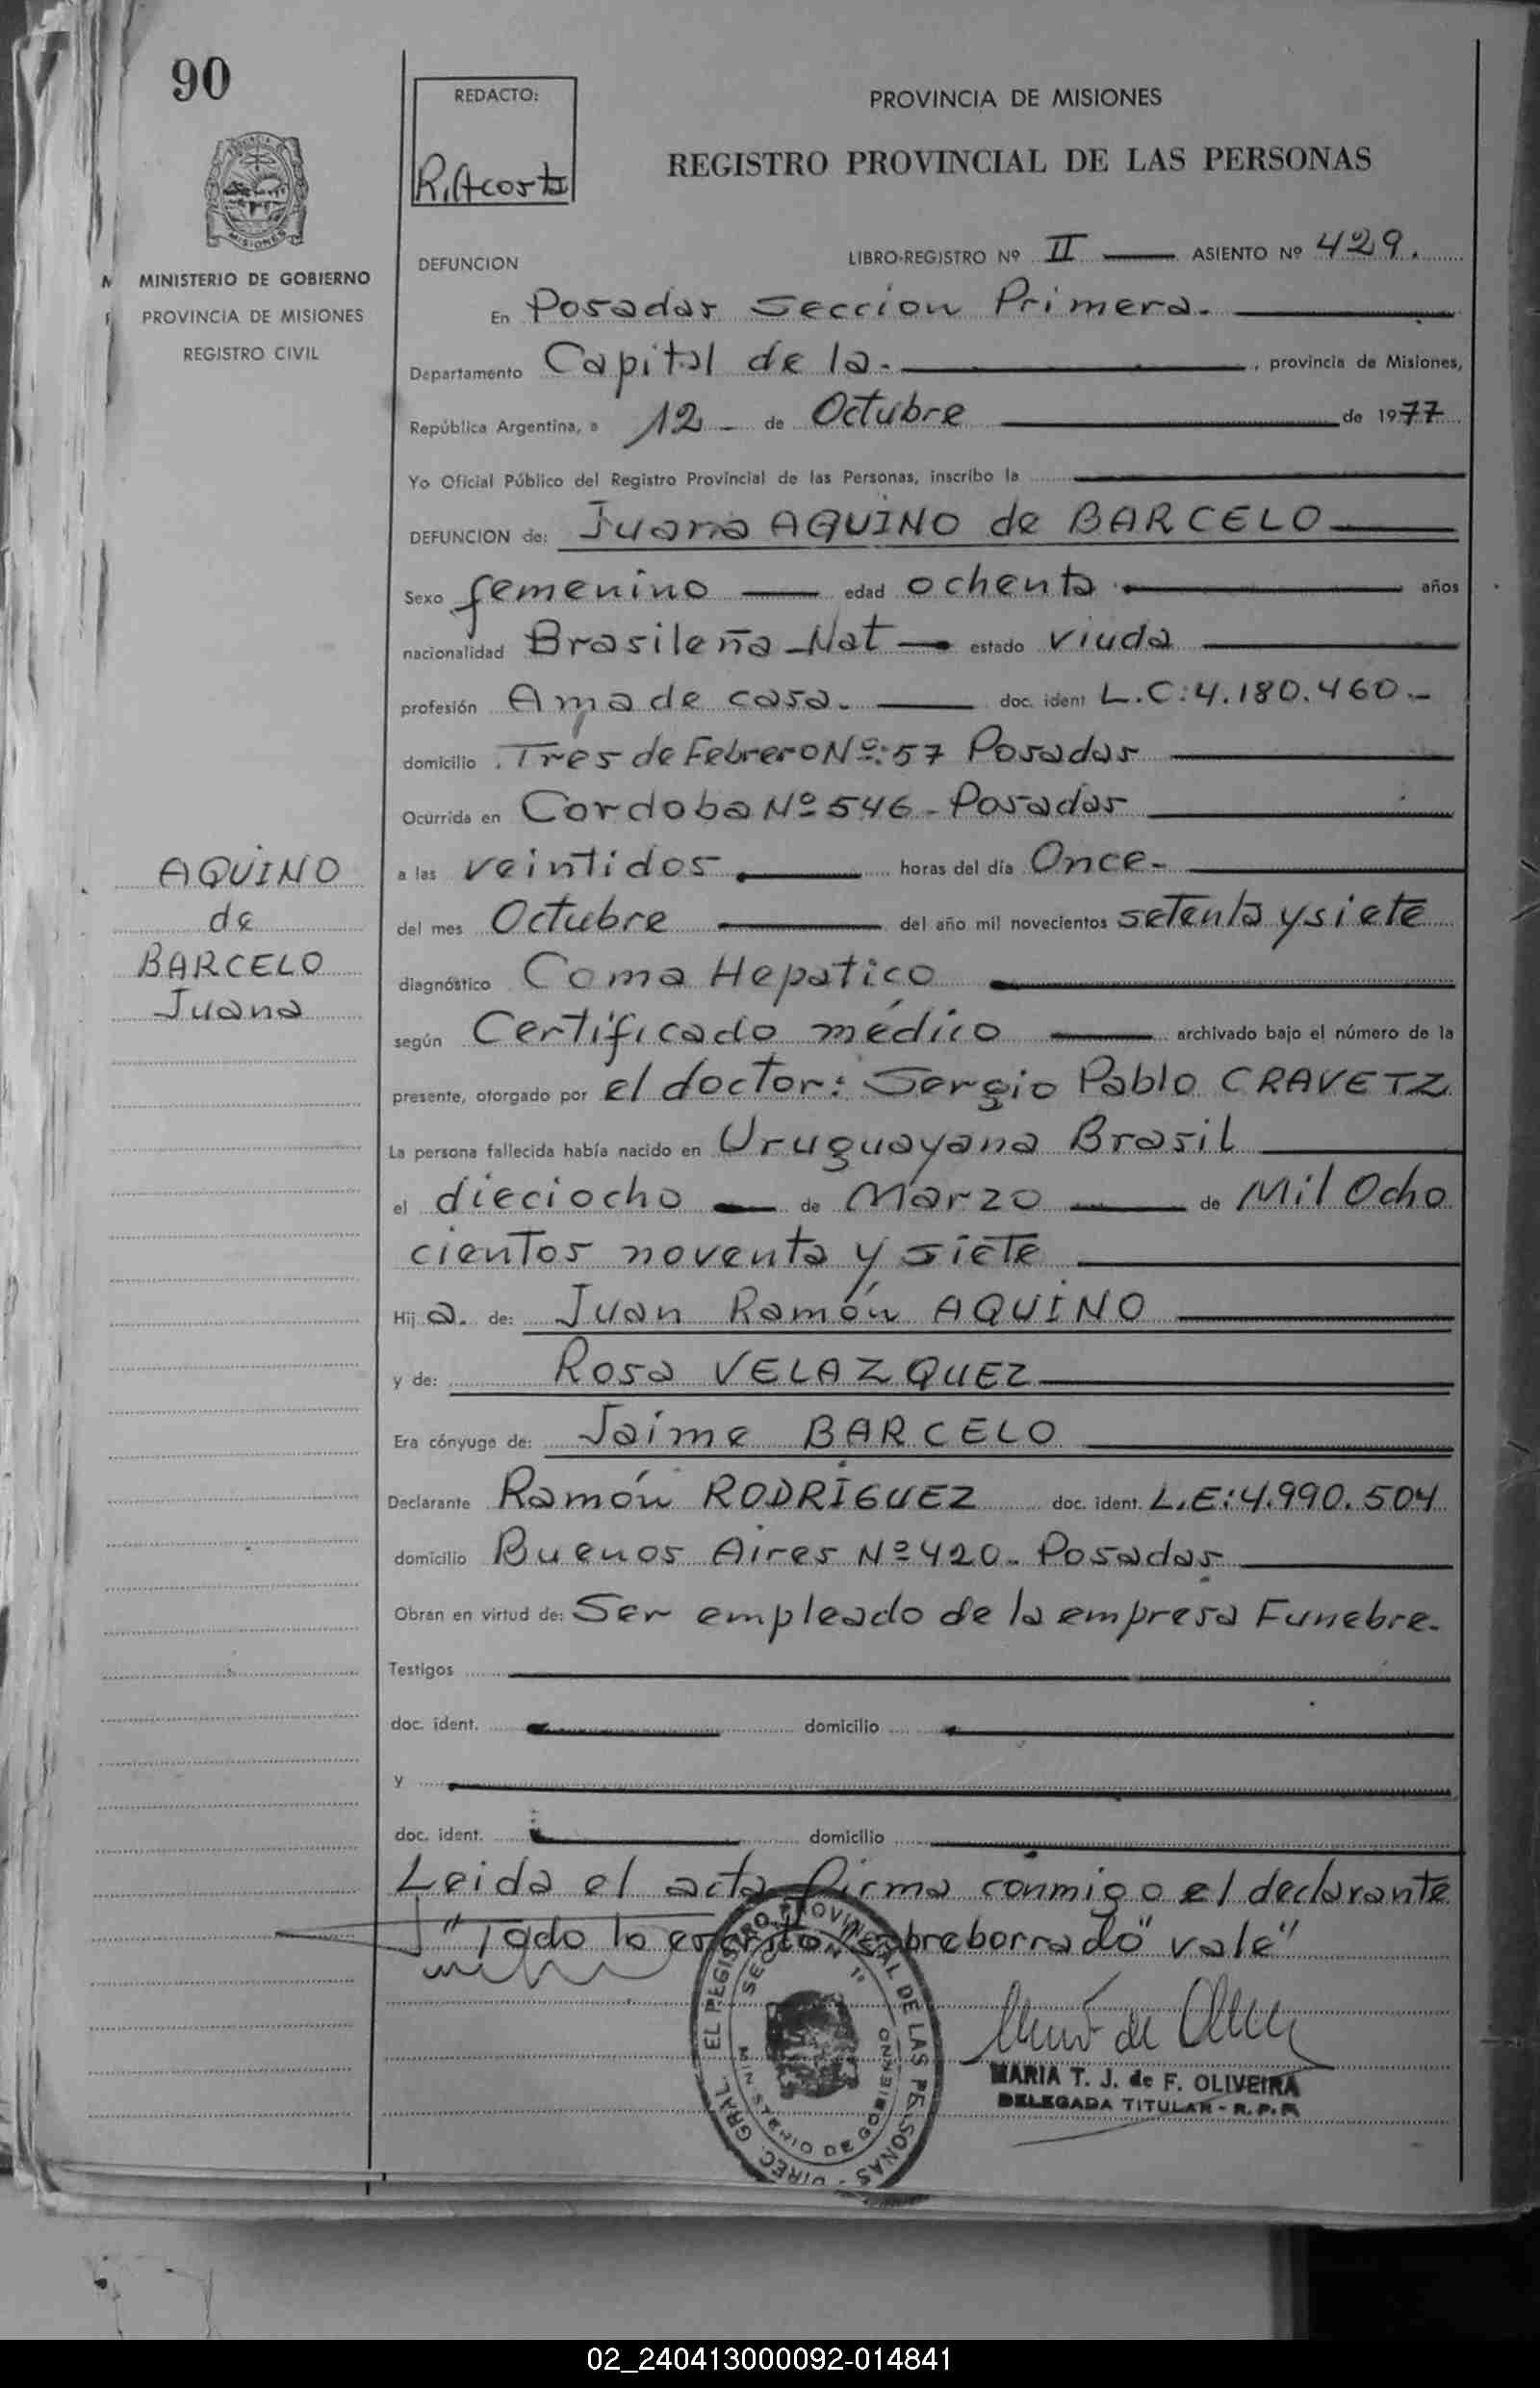 90
REDACTO:
R. Acosta
PROVINCIA DE MISIONES
REGISTRO PROVINCIAL DE LAS PERSONAS
MISIONES
MINISTERIO DE GOBIERNO
PROVINCIA DE MISIONES
REGISTRO CIVIL
DEFUNCION
LIBRO-REGISTRO Nº II ASIENTO Nº 429.
En Posadas Seccion Primera.
Departamento Capital de la. , provincia de Misiones,
República Argentina, a 12 - de Octubre de 1977
Yo Oficial Público del Registro Provincial de las Personas, inscribo la
DEFUNCION de: Juana AQUINO de BARCELO
Sexo femenino edad ochenta años
nacionalidad Brasileña-Nat estado viuda
profesión Ama de casa. doc. ident L.C:4.180.460.-
domicilio Tres de Febrero Nº:57 Posadas
Ocurrida en Cordoba Nº 546 - Posadas
a las veintidos horas del día Once-
del mes Octubre del año mil novecientos setenta y siete
diagnóstico Coma Hepatico
según Certificado médico archivado bajo el número de la
presente, otorgado por el doctor: Sergio Pablo CRAVETZ
La persona fallecida había nacido en Uruguayana Brasil
el dieciocho de Marzo de Mil Ocho
cientos noventa y siete
Hij a. de: Juan Ramón AQUINO
y de: Rosa VELAZQUEZ
Era cónyuge de: Jaime BARCELO
Declarante Ramón RODRÍGUEZ doc. ident. L.E:4.990.504
domicilio Buenos Aires Nº 420. Posadas
Obran en virtud de: Ser empleado de la empresa Funebre.
Testigos
doc. ident. domicilio
y
doc. ident. domicilio
Leida el acta firma conmigo el declarante
"Todo lo escrito "sobreborrado" vale"
AQUINO
de
BARCELO
Juana
DIREC. GRAL. EL REGISTRO PROVINCIAL DE LAS PERSONAS
SECCION 1º
MINISTERIO DE GOBIERNO
MARIA T. J. de F. OLIVEIRA
DELEGADA TITULAR - R. P. P.
02_240413000092-014841